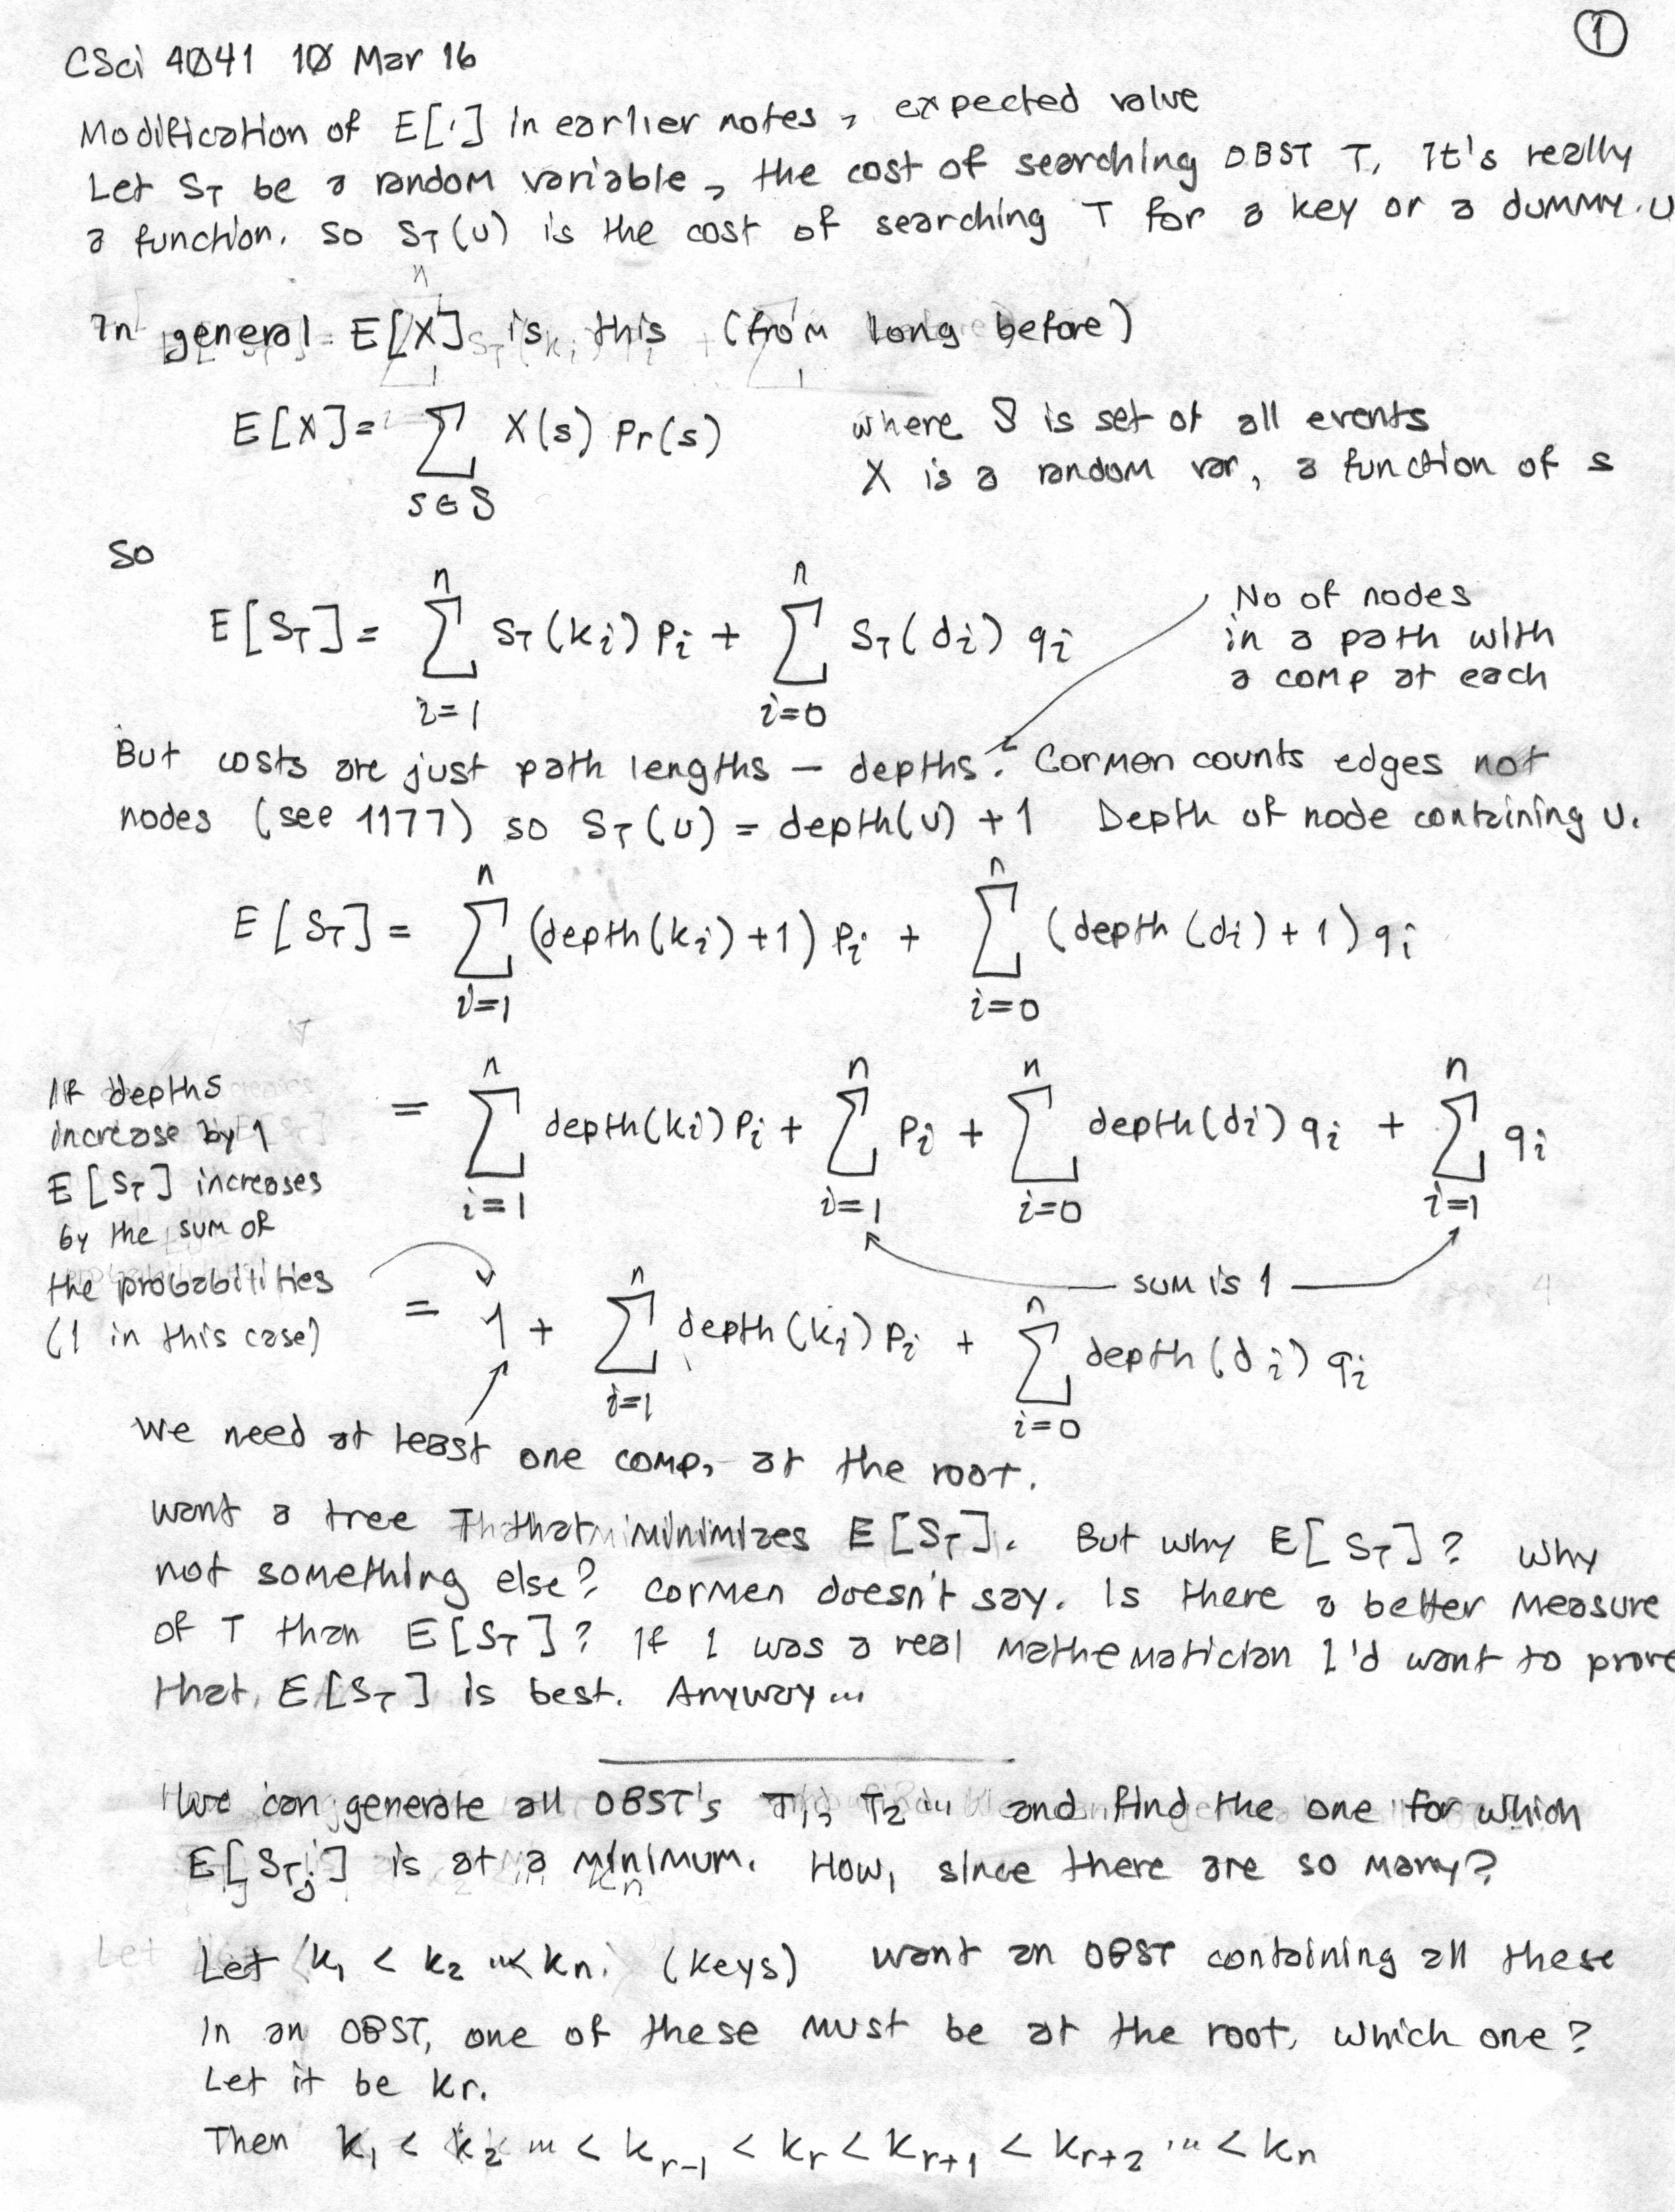 ①
CSci 4041 10 Mar 16
Modification of E[·] in earlier notes, expected value
Let S_T be a random variable, the cost of searching OBST T. It's really
a function. So S_T(u) is the cost of searching T for a key or a dummy u
In general E[X] is this (from long before)
E[X] = ∑_{s∈S} X(s) Pr(s)
where S is set of all events
X is a random var, a function of s
So
E[S_T] = ∑_{i=1}^{n} S_T(k_i) p_i + ∑_{i=0}^{n} S_T(d_i) q_i
No of nodes
in a path with
a comp at each
But costs are just path lengths — depths. Cormen counts edges not
nodes (see 1177) so S_T(u) = depth(u) + 1 Depth of node containing u.
E[S_T] = ∑_{i=1}^{n} (depth(k_i)+1) p_i + ∑_{i=0}^{n} (depth(d_i)+1) q_i
= ∑_{i=1}^{n} depth(k_i) p_i + ∑_{i=1}^{n} p_i + ∑_{i=0}^{n} depth(d_i) q_i + ∑_{i=1}^{n} q_i
If depths
increase by 1
E[S_T] increases
by the sum of
the probabilities
(1 in this case)
sum is 1
= 1 + ∑_{i=1}^{n} depth(k_i) p_i + ∑_{i=0}^{n} depth(d_i) q_i
We need at least one comp, at the root.
Want a tree T that minimizes E[S_T]. But why E[S_T]? Why
not something else? Cormen doesn't say. Is there a better measure
of T than E[S_T]? If I was a real mathematician I'd want to prove
that E[S_T] is best. Anyway...
We can generate all OBST's T_1, T_2 ... and find the one for which
E[S_{T_j}] is at a minimum. How, since there are so many?
Let k_1 < k_2 ... < k_n. (keys) want an OBST containing all these
In an OBST, one of these must be at the root. Which one?
Let it be k_r.
Then k_1 < k_2 ... < k_{r-1} < k_r < k_{r+1} < k_{r+2} ... < k_n